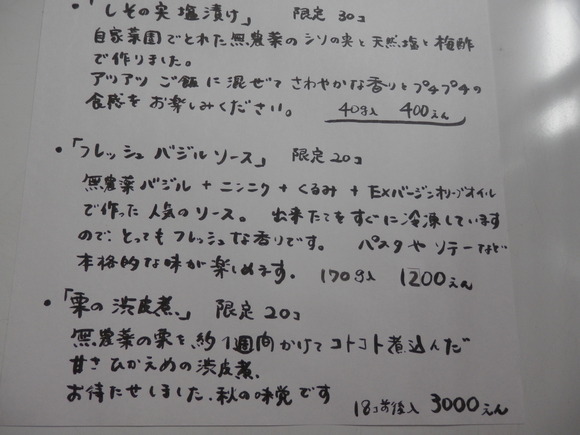 ・「しその実塩漬け」 限定30コ
自家菜園でとれた無農薬のシソの実と天然塩と梅酢
で作りました。
アツアツご飯に混ぜてさわやかな香りとプチプチの
食感をお楽しみください。 40g入 400えん
・「フレッシュバジルソース」 限定20コ
無農薬バジル+ニンニク+くるみ+EXバージンオリーブオイル
で作った人気のソース。 出来たてをすぐに冷凍しています
ので、とってもフレッシュな香りです。 パスタやソテーなど
本格的な味が楽しめます。 170g入 1200えん
・「栗の渋皮煮」 限定20コ
無農薬の栗を、約1週間かけてコトコト煮込んだ
甘さひかえめの渋皮煮、
お待たせしました、秋の味覚です
18コ前後入 3000えん